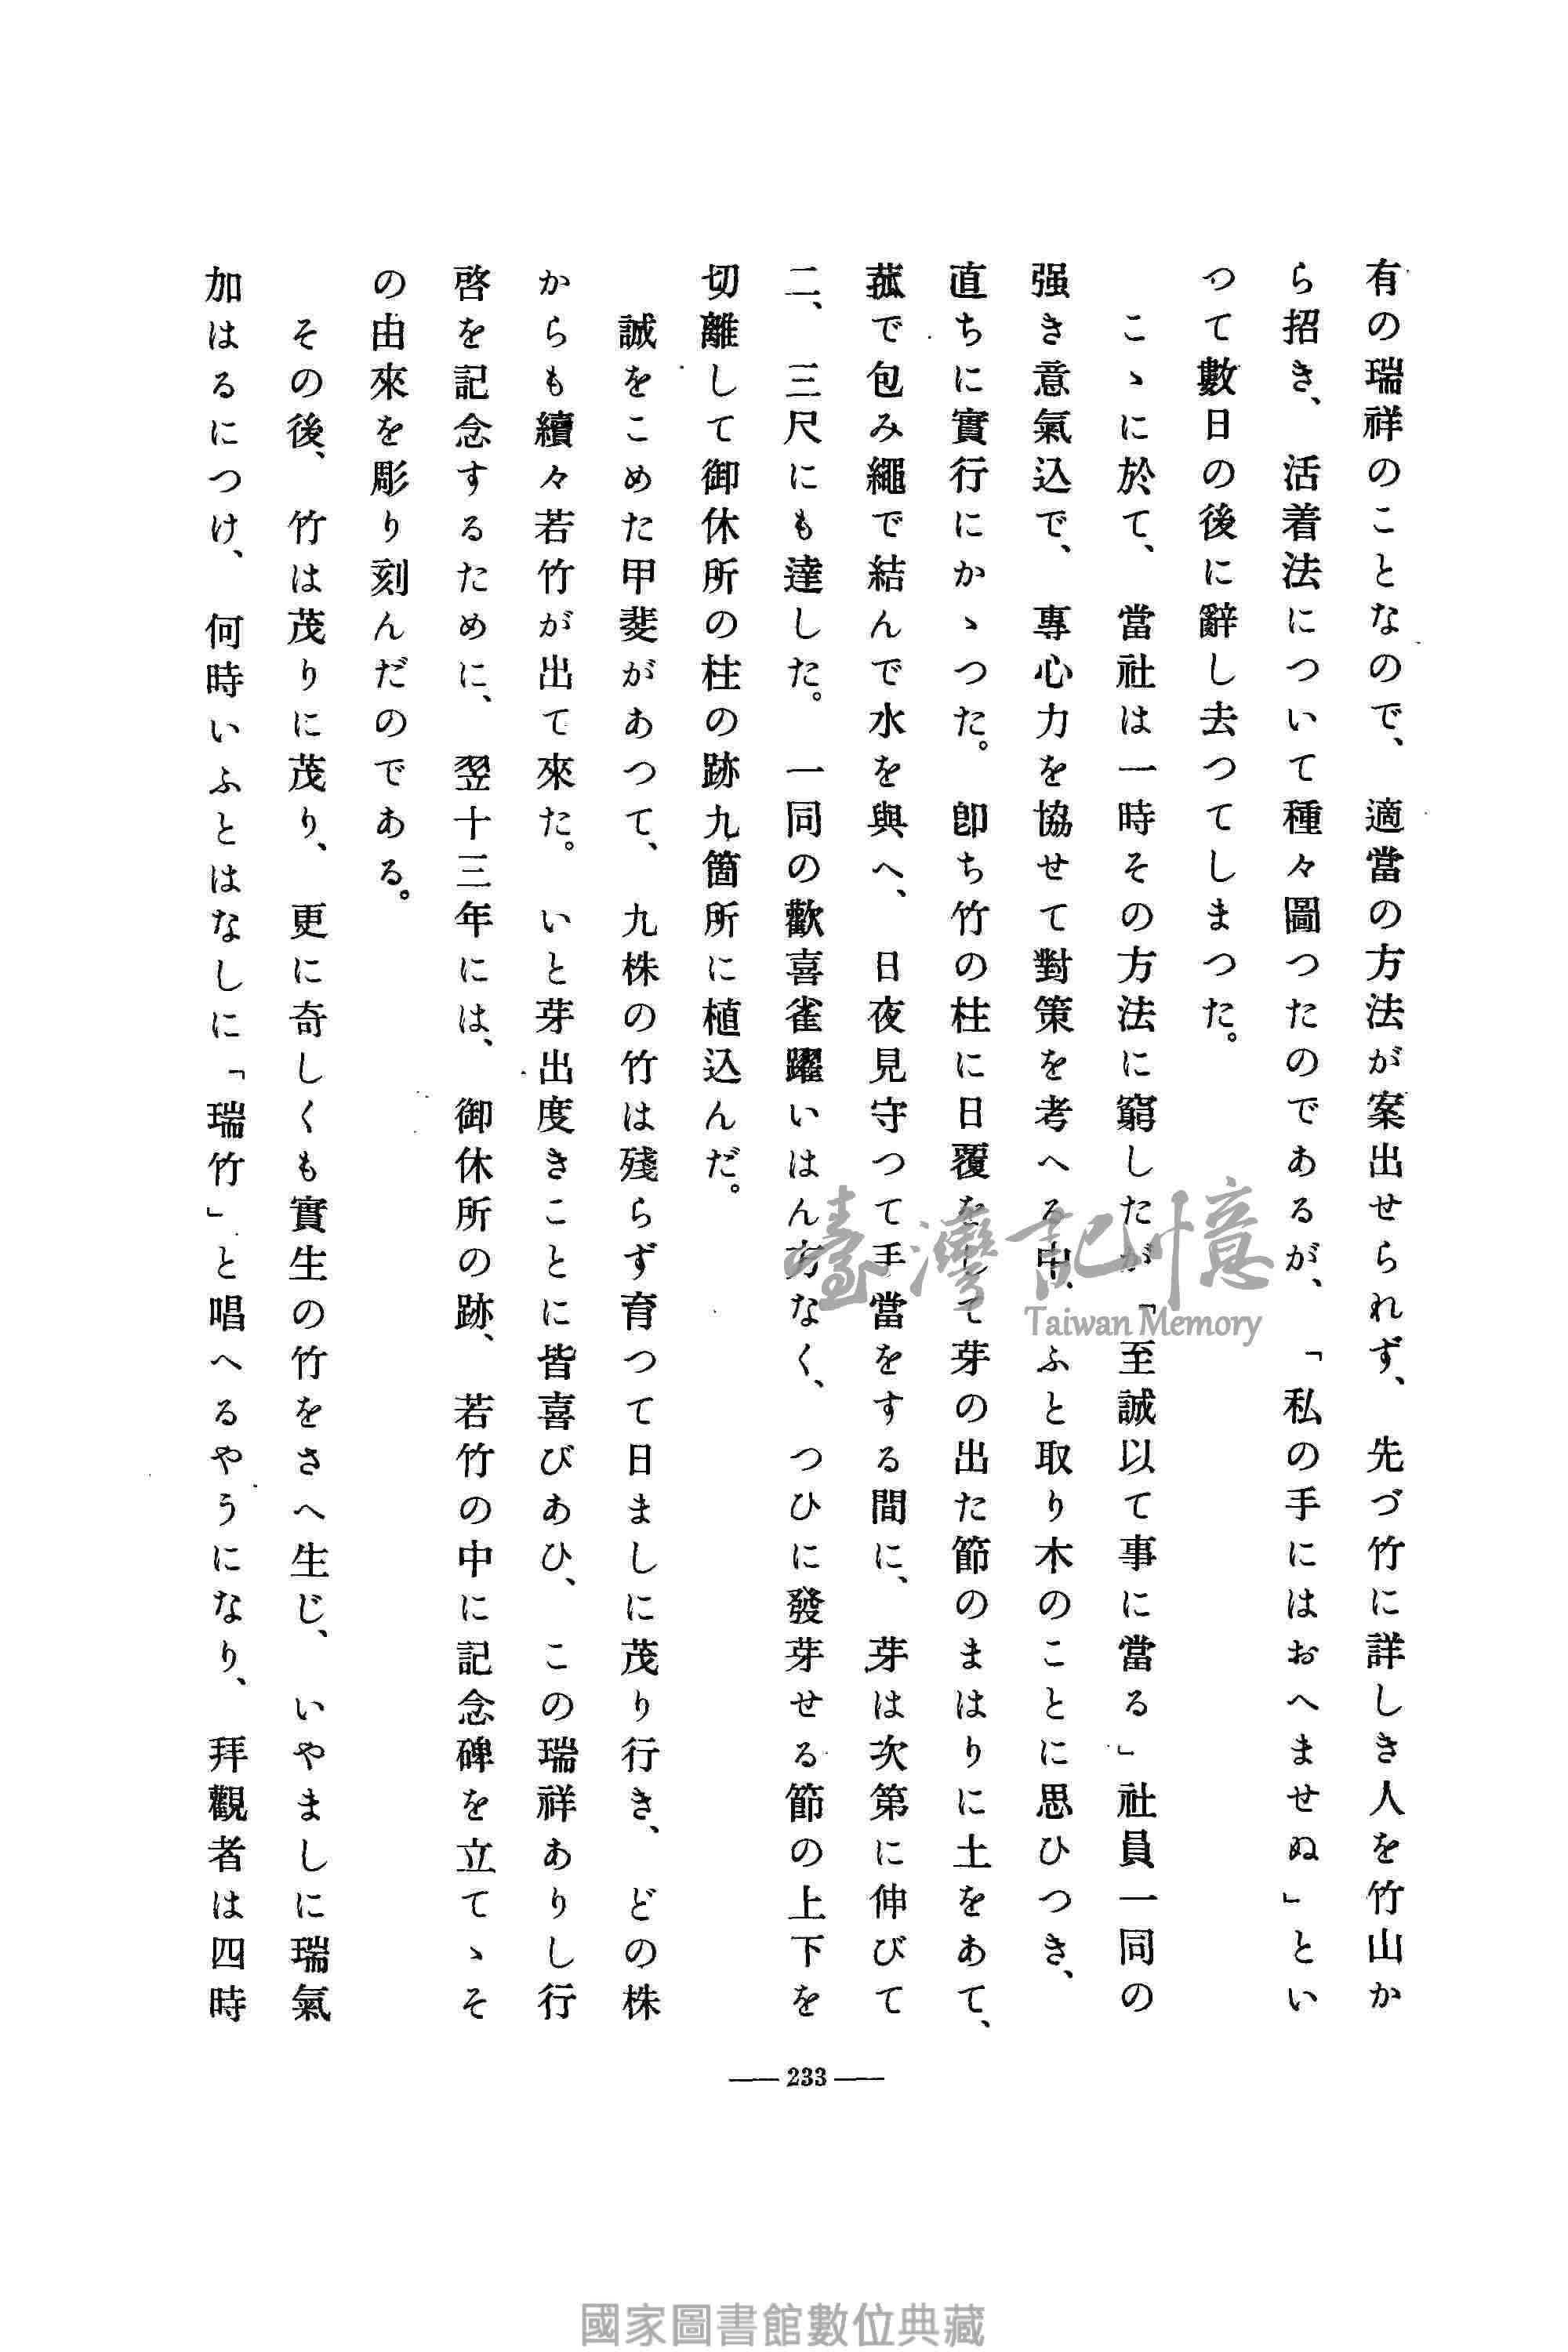 有の瑞祥のことなので、適當の方法が案出せられず、先づ竹に詳しき人を竹山か
ら招き、活着法について種々圖つたのであるが、「私の手にはおへませぬ」とい
つて數日の後に辭し去つてしまつた。
こゝに於て、當社は一時その方法に窮したが「至誠以て事に當る」社員一同の
强き意氣込で、專心力を協せて對策を考へる中、ふと取り木のことに思ひつき、
直ちに實行にかゝつた。卽ち竹の柱に日覆をして芽の出た節のまはりに土をあて、
菰で包み繩で結んで水を與へ、日夜見守つて手當をする間に、芽は次第に伸びて
二、三尺にも達した。一同の歡喜雀躍いはん方なく、つひに發芽せる節の上下を
切離して御休所の柱の跡九箇所に植込んだ。
誠をこめた甲斐があつて、九株の竹は殘らず育つて日ましに茂り行き、どの株
からも續々若竹が出て來た。いと芽出度きことに皆喜びあひ、この瑞祥ありし行
啓を記念するために、翌十三年には、御休所の跡、若竹の中に記念碑を立てゝそ
の由來を彫り刻んだのである。
その後、竹は茂りに茂り、更に奇しくも實生の竹をさへ生じ、いやましに瑞氣
加はるにつけ、何時いふとはなしに「瑞竹」と唱へるやうになり、拜觀者は四時
233
臺灣記憶
Taiwan Memory
國家圖書館數位典藏